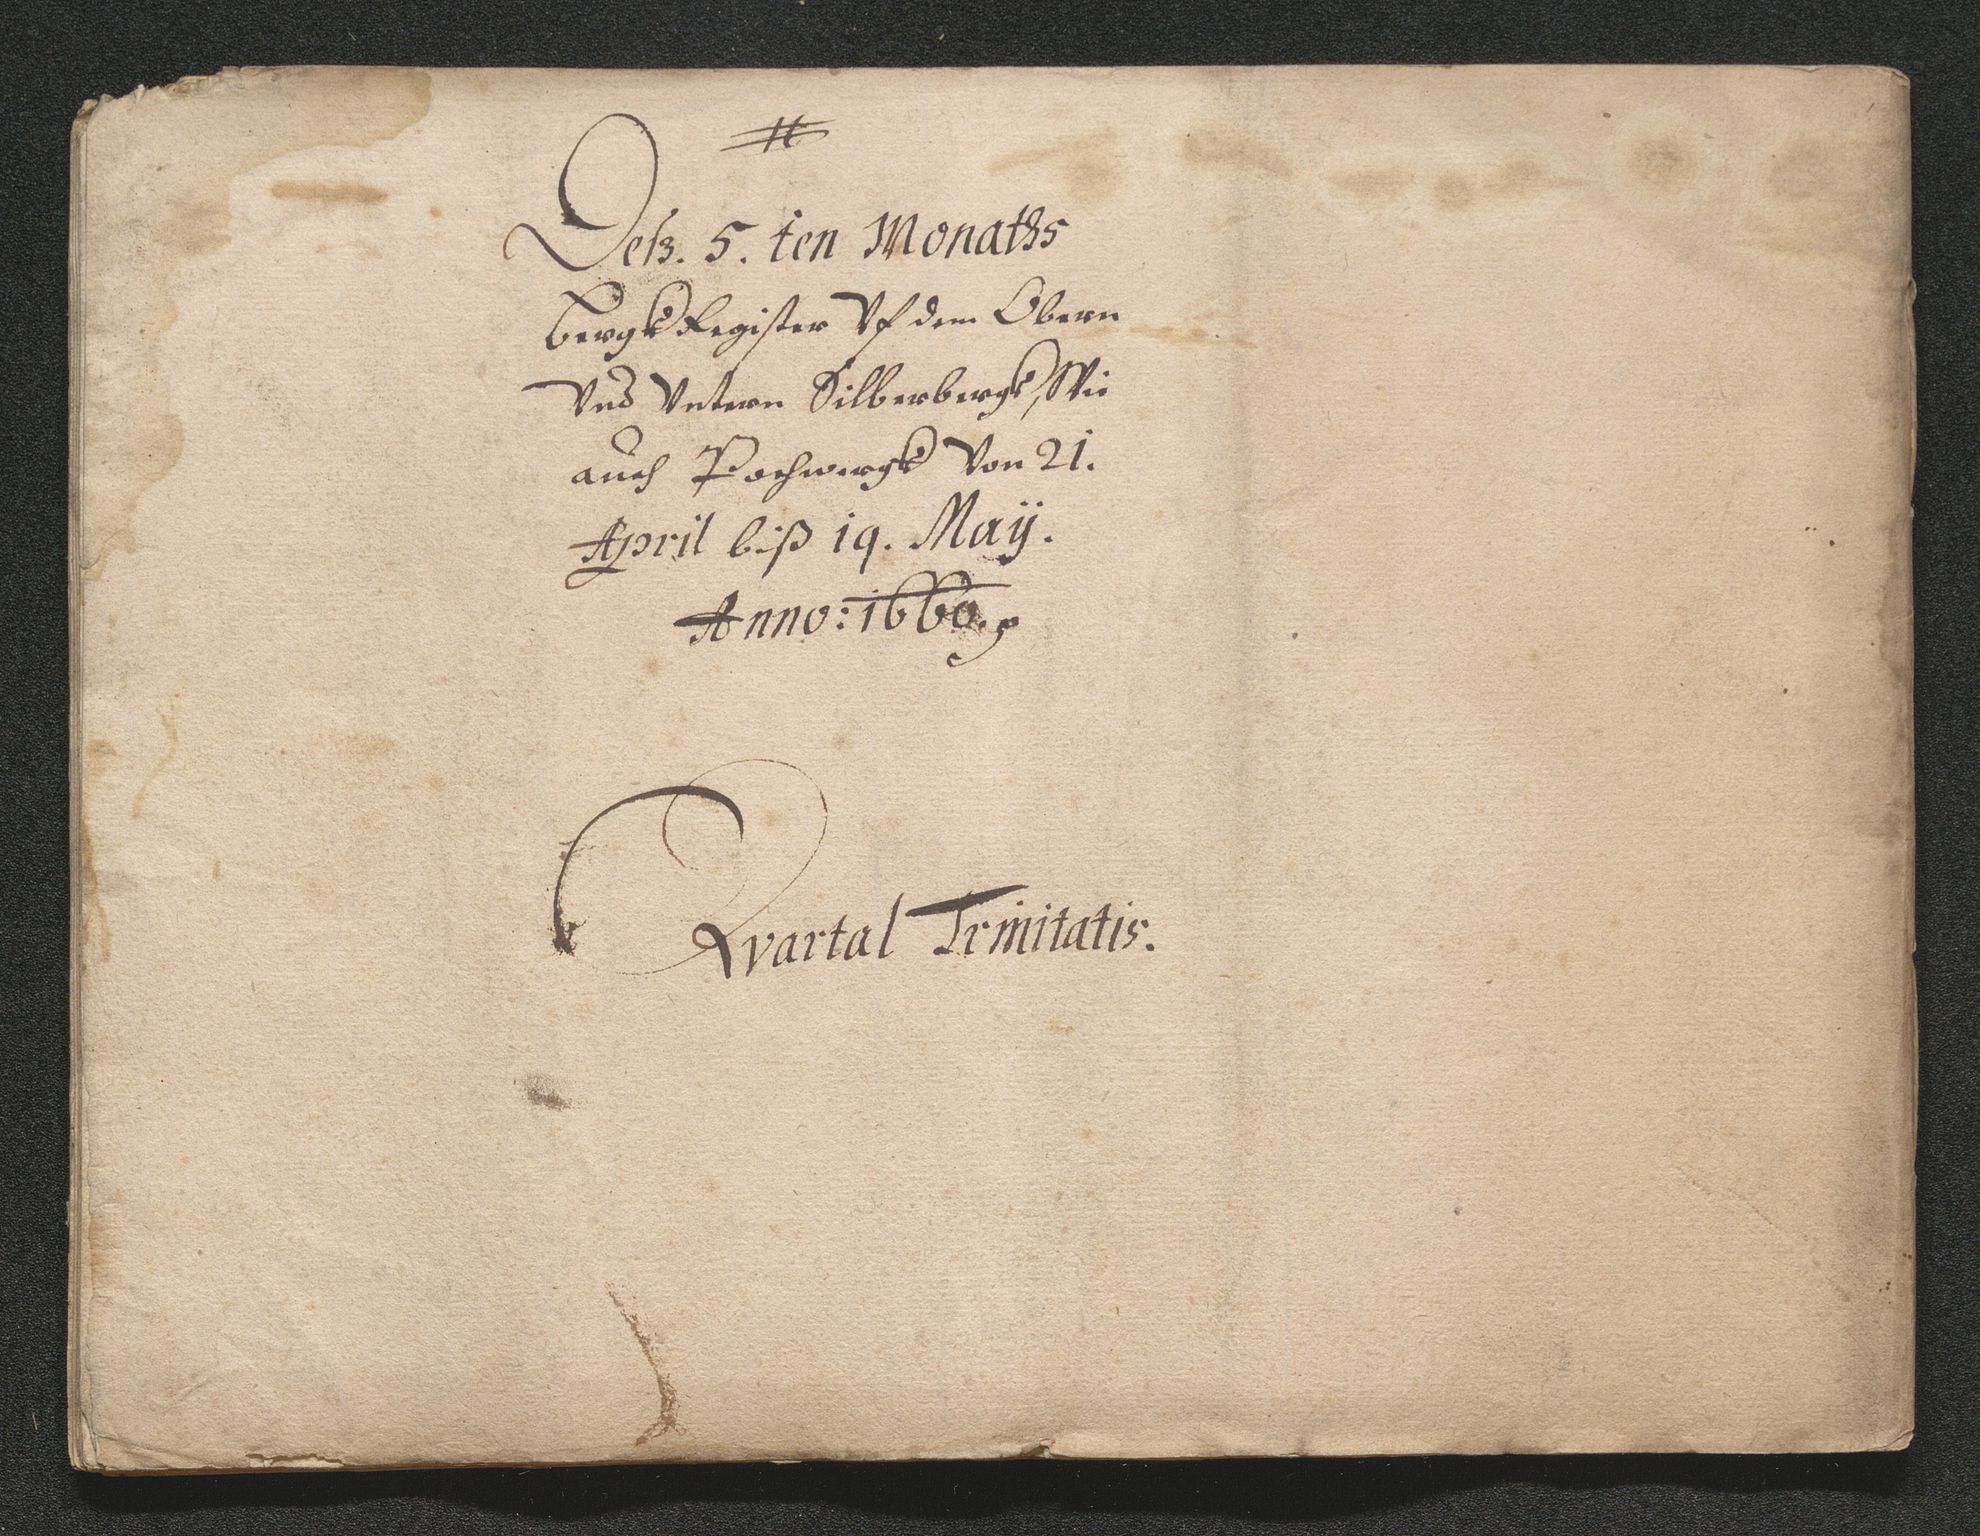 Deß. 5. ten Monaths
bergkRegister Vf dem Obern
Vnd Vntern Silberbergk, Wie
auch Pochwergk Von 21.
April biß 19. Maÿ.
Anno: 1660.
Qvartal Trinitatis.